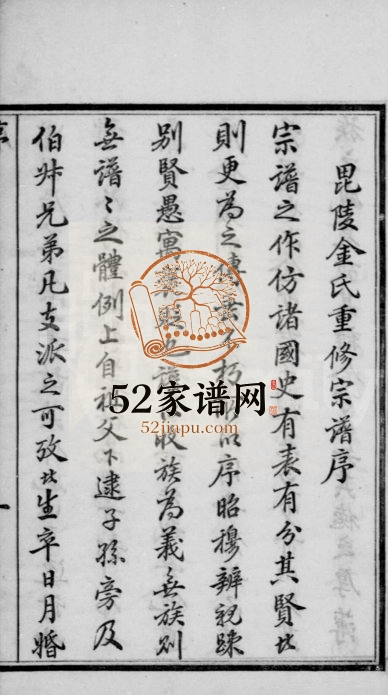 毘陵金氏重修宗譜序
宗譜之作仿諸國史有表有分其賢比
則更為之傳 朽 以序昭穆辨親疎
別賢愚寓 也 收族為義無族則
無譜〻之體例上自祖父下逮子孫旁及
伯叔兄弟凡支派之可攷比生卒日月婚
52家谱网
52jiapu.com